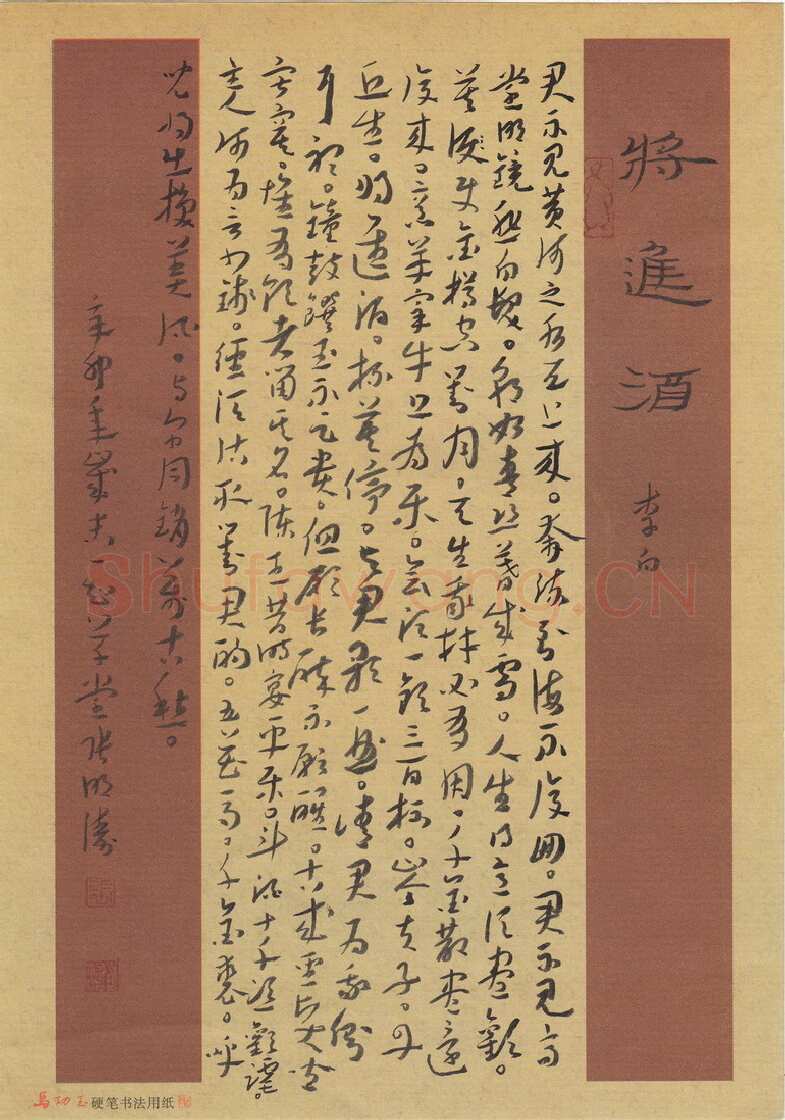 將進酒
李白
君不見黃河之水天上來。奔流到海不復回。君不見高
堂明鏡悲白髮。朝如青絲暮成雪。人生得意須盡歡。
莫使金樽空對月。天生我材必有用。千金散盡還
復來。烹羊宰牛且為樂。會須一飲三百杯。岑夫子。丹
丘生。將進酒。杯莫停。與君歌一曲。請君為我側
耳聽。鐘鼓饌玉不足貴。但願長醉不願醒。古來聖賢皆
寂寞。惟有飲者留其名。陳王昔時宴平樂。斗酒十千恣歡謔。
主人何為言少錢。徑須沽取對君酌。五花馬。千金裘。呼
兒將出換美酒。與爾同銷萬古愁。
辛卯年歲末一草堂張明濤
Shufawang.CN
硬笔书法用纸